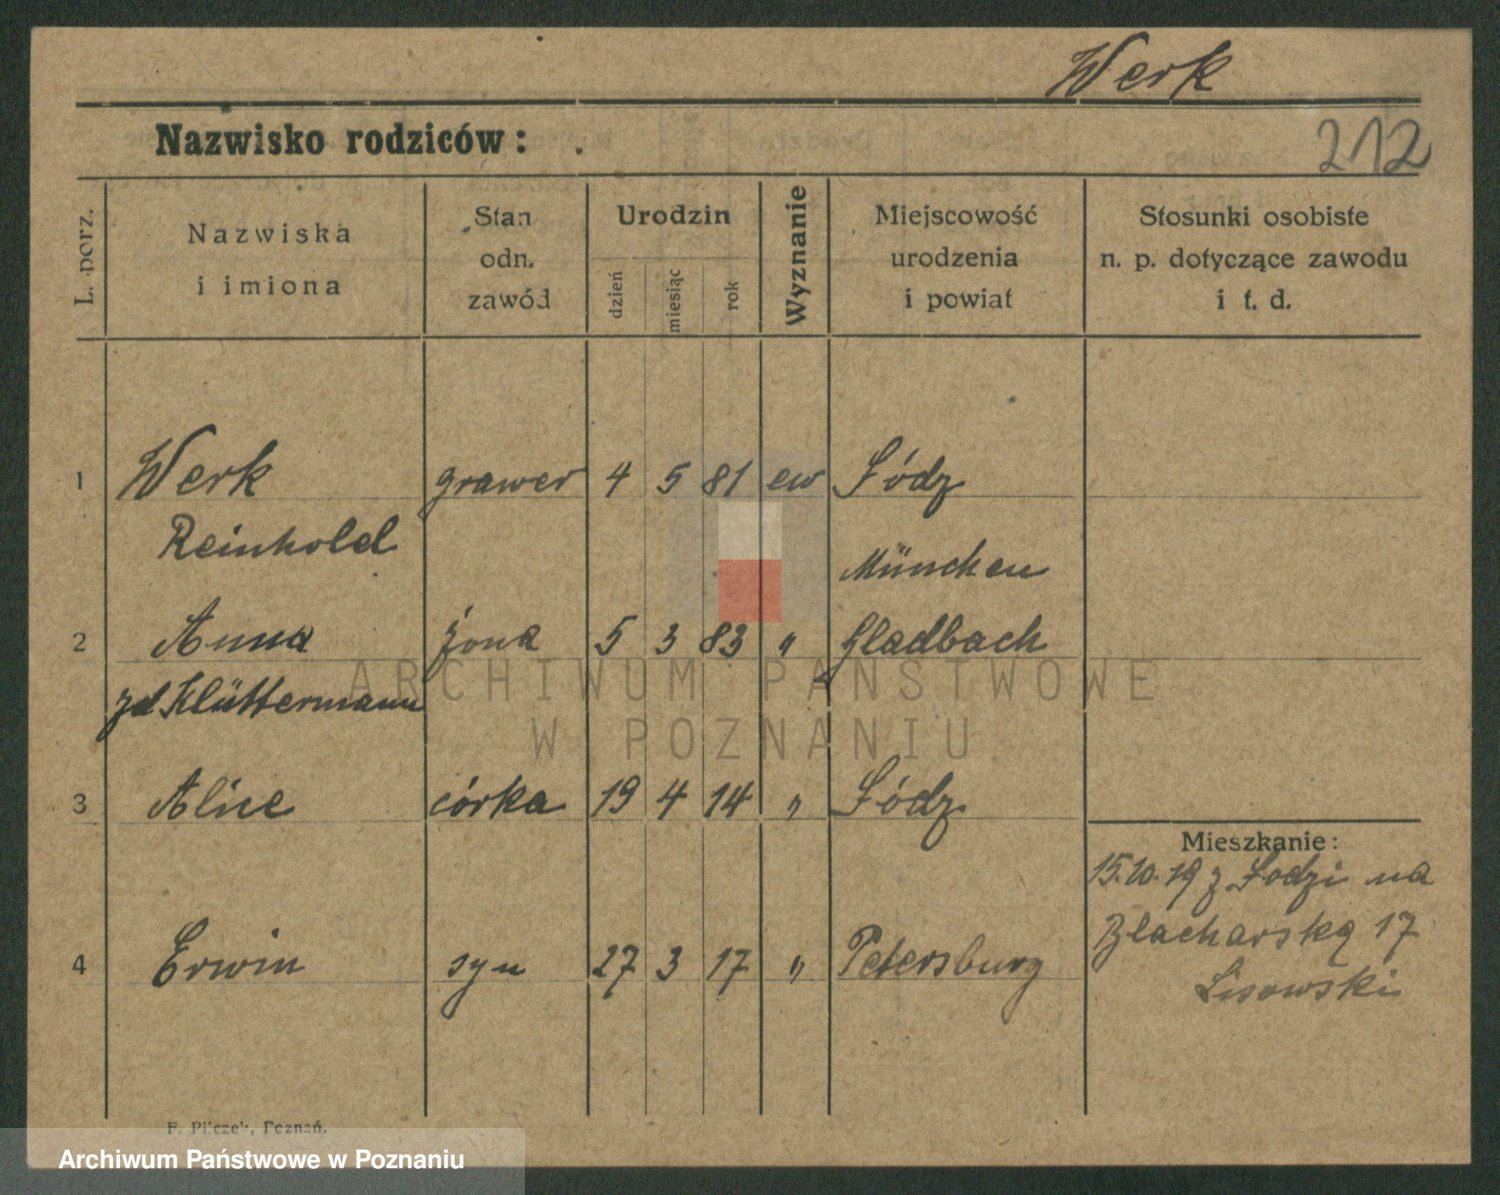 Werk
Nazwisko rodziców:
212
L. porz.
Nazwiska
i imiona
Stan
odn.
zawód
Urodzin
dzień
miesiąc
rok
Wyznanie
Miejscowość
urodzenia
i powiat
Stosunki osobiste
n. p. dotyczące zawodu
i t. d.
1 Werk grawer 4 5 81 ew Łódz
Reinhold
München
2 Anna żona 5 3 83 " Gladbach
zd Klüttermann
3 Alice córka 19 4 14 " Łódz
Mieszkanie:
15.10.19 z Łodzi na
Blacharską 17
Lisowski
4 Erwin syn 27 3 17 " Petersburg
F. Pilczek, Poznań.
ARCHIWUM PAŃSTWOWE
W POZNANIU
Archiwum Państwowe w Poznaniu